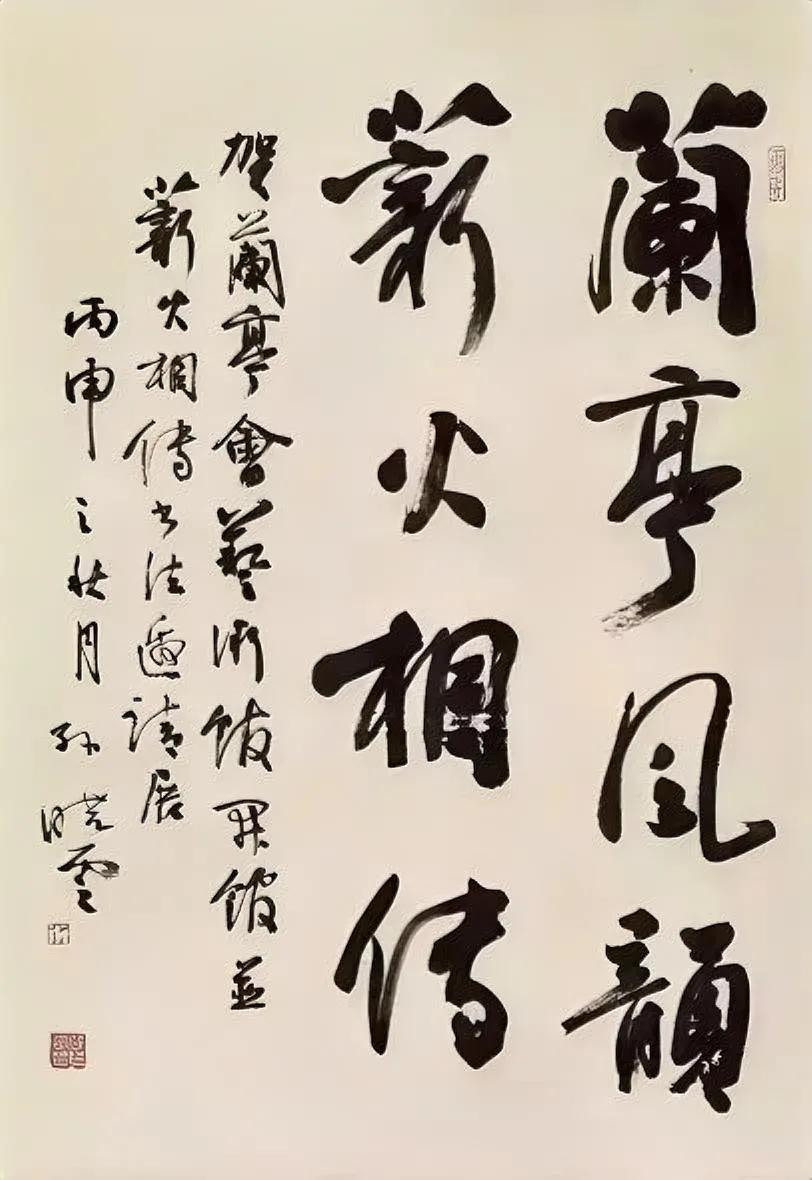 蘭亭風韻
薪火相傳
賀蘭亭會藝術館開館並
薪火相傳書法邀請展
丙申之秋月 孙曉雲